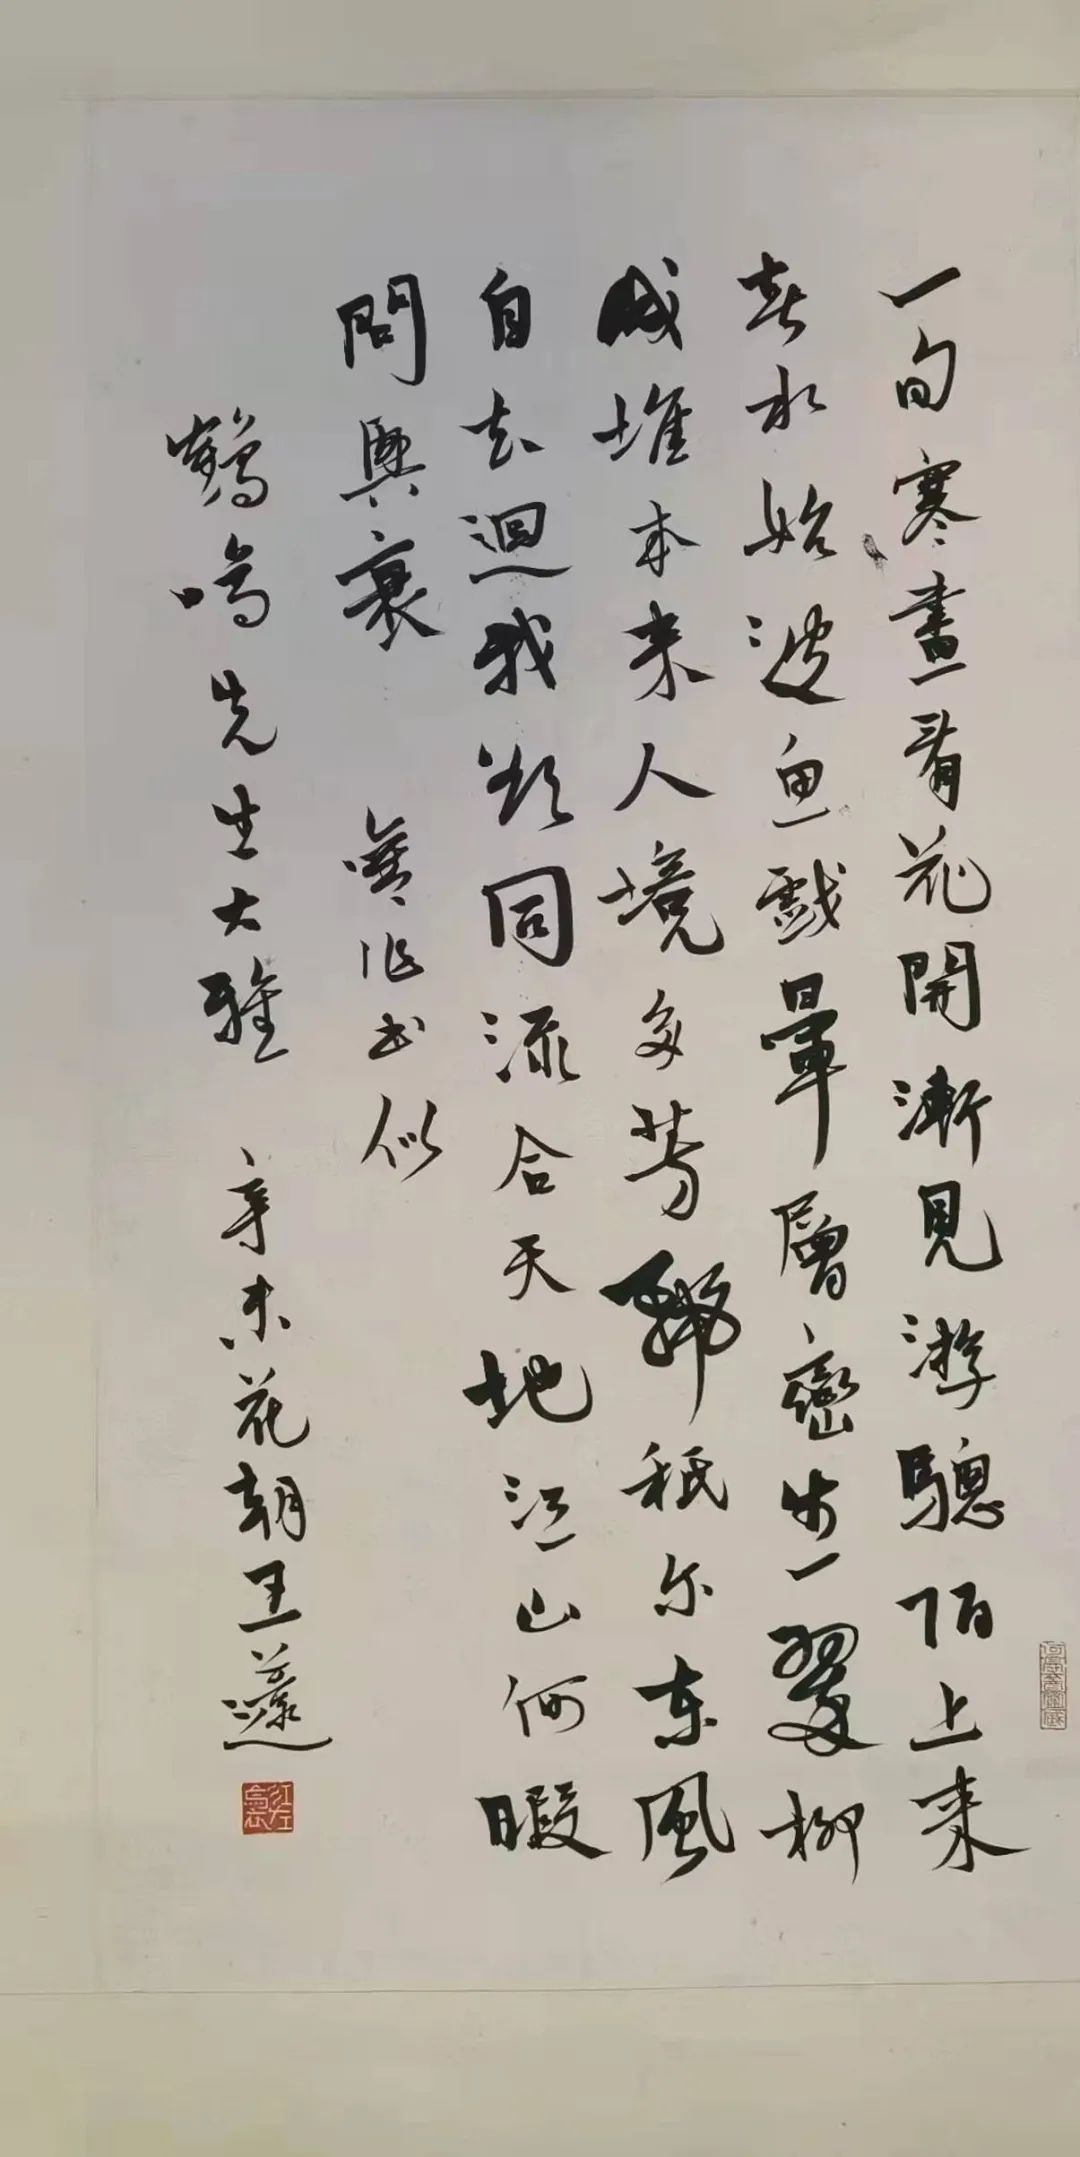 一旬寒盡看花開漸見游驄陌上来
春水始波魚戲暈層巒步一翠柳
成堆本来人境多芳
秖尔東風
自去迴我欲同流合天地江山何暇
問興衰 舊作書似
鶴鳴先生大雅 辛未花朝王蘧